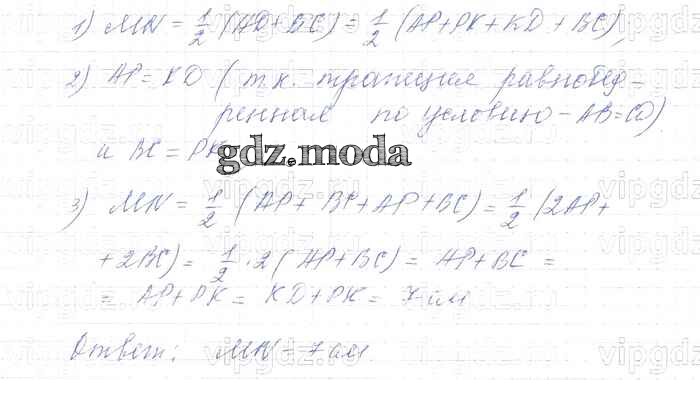 1) MN = 1/2 (AD + BC) = 1/2 (AP + PK + KD + BC),
2) AP = KD (т.к. трапеция равнобед-
ренная по условию - AB = CD)
и BC = PK
gdz.moda
3) MN = 1/2 (AP + BC + AP + BC) = 1/2 (2AP +
+ 2BC) = 1/2 · 2 (AP + BC) = AP + BC =
= AP + PK = KD + PK = 7 см
Ответ: MN = 7 см.